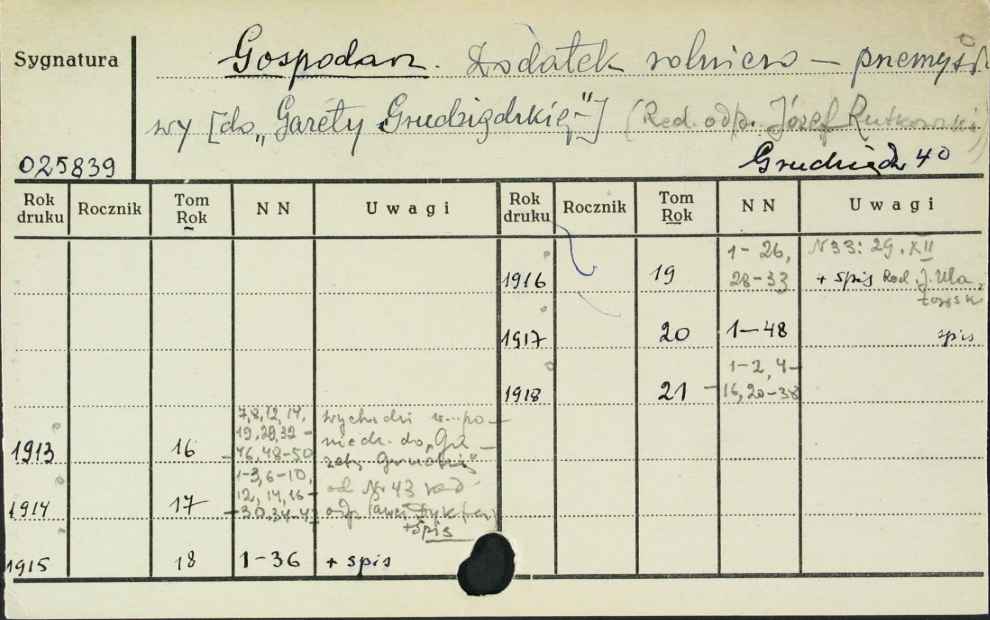 Sygnatura
Gospodarz. Dodatek rolniczo - przemysło
wy [do „Gazety Grudziądzkiej"] (Red. odp. Józef Rutkowski)
025839
Grudziądz 40
Rok druku Rocznik Tom Rok NN Uwagi Rok druku Rocznik Tom Rok NN Uwagi
1916 19 1-26, 28-33 N 33: 29.XII + spis Red. J.
1917 20 1-48 spis
1918 21 1-2, 4-16, 20-38
1913 16 7,8,12,14, 19,28,32-46,48-50 wychodzi w po-niedz. do „Ga-zety
1914 17 1-3,6-10, 12, 14,16- od Nr 43 red odp. + spis
1915 18 1-36 + spis